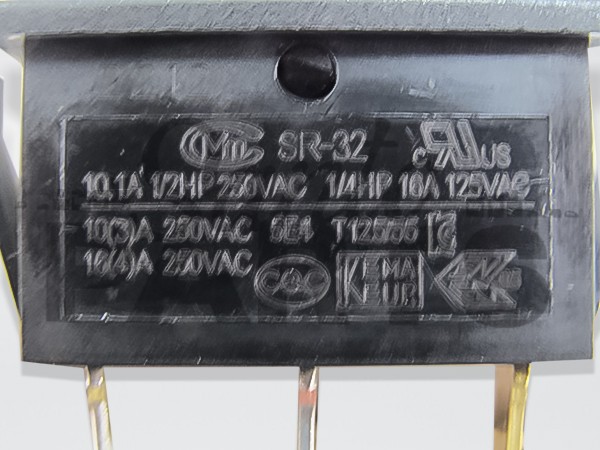 SR-32 c UR US
10.1A 1/2HP 250VAC 1/4HP 16A 125VAC
10(3)A 250VAC 5E4 T125/55
16(4)A 250VAC CQC KEMA EUR